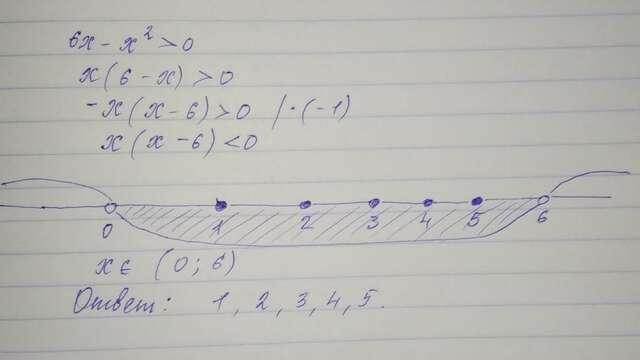 6x - x² > 0
x(6 - x) > 0
-x(x - 6) > 0 / · (-1)
x(x - 6) < 0
0 1 2 3 4 5 6
x ∈ (0; 6)
Ответ: 1, 2, 3, 4, 5.